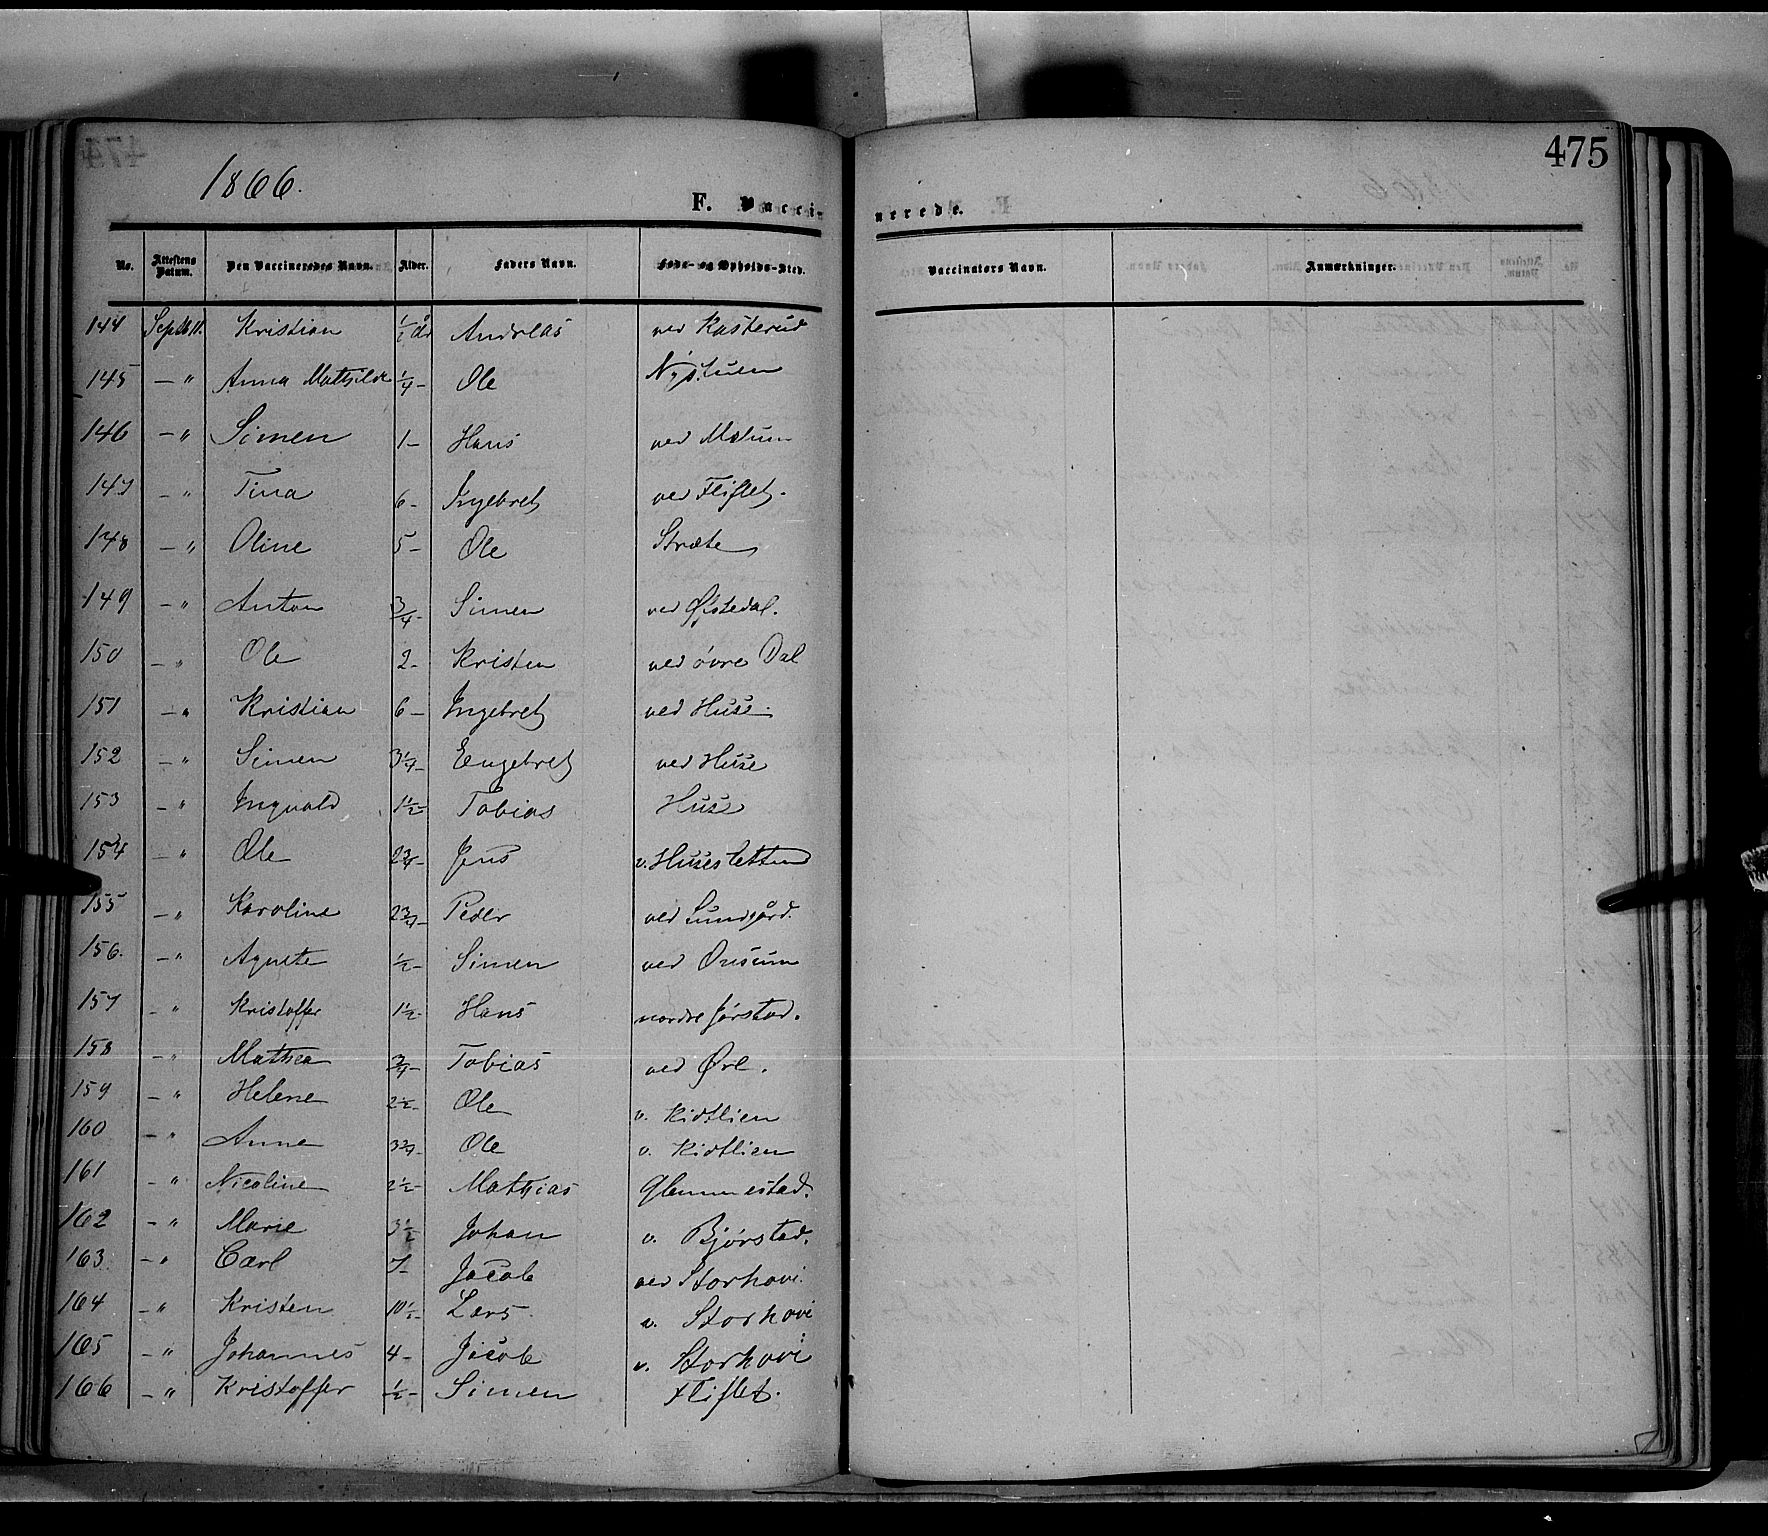 475
1866.
F. Vaccinerede.
No. Attestens Datum. Den Vaccineredes Navn. Alder. Faders Navn. Føde- og Opholds-Sted. Vaccinators Navn. Anmærkninger.
144 Septb 11. Kristian ½ år Andreas ved Kasterud
145 — " Anna Mathilde ¼ - Ole Nystuen
146 — " Simen 1 - Hans ved Melum
147 — " Tina 6 - Ingebret ved Fliflet.
148 — " Oline 5 - Ole Stræte
149 — " Anton ¾ - Simen ved Øfstedal.
150 — " Ole 2 - Kristen ved övre Dal
151 — " Kristian 6 - Ingebret ved Huse.
152 — " Simen 3¼ - Engebret ved Huse
153 — " Ingvald 1½ - Tobias Huse
154 — " Ole 2¾ - Jens v. Husesletten
155 — " Karoline 2¾ - Peder ved Lundgård.
156. — " Agnete ½ - Simen ved Onsum
157 — " Kristoffer 1½ - Hans nordre Jørstad.
158 — " Mathea ¾ - Tobias ved Øvl.
159 — " Helene 2½ - Ole v. Kidtlien
160 — " Anne 3¾ - Ole v. Kidtlien
161 — " Nicoline 2½ - Mathias Glemmestad.
162 — " Marie 3½ Johan v. Bjørstad.
163 — " Carl 7 - Jacob ved Storhovi.
164 — " Kristen 10½ - Lars v. Storhovi
165 — " Johannes 4 - Jacob v. Storhovi
166 — " Kristoffer ½ - Simen Fliflet.